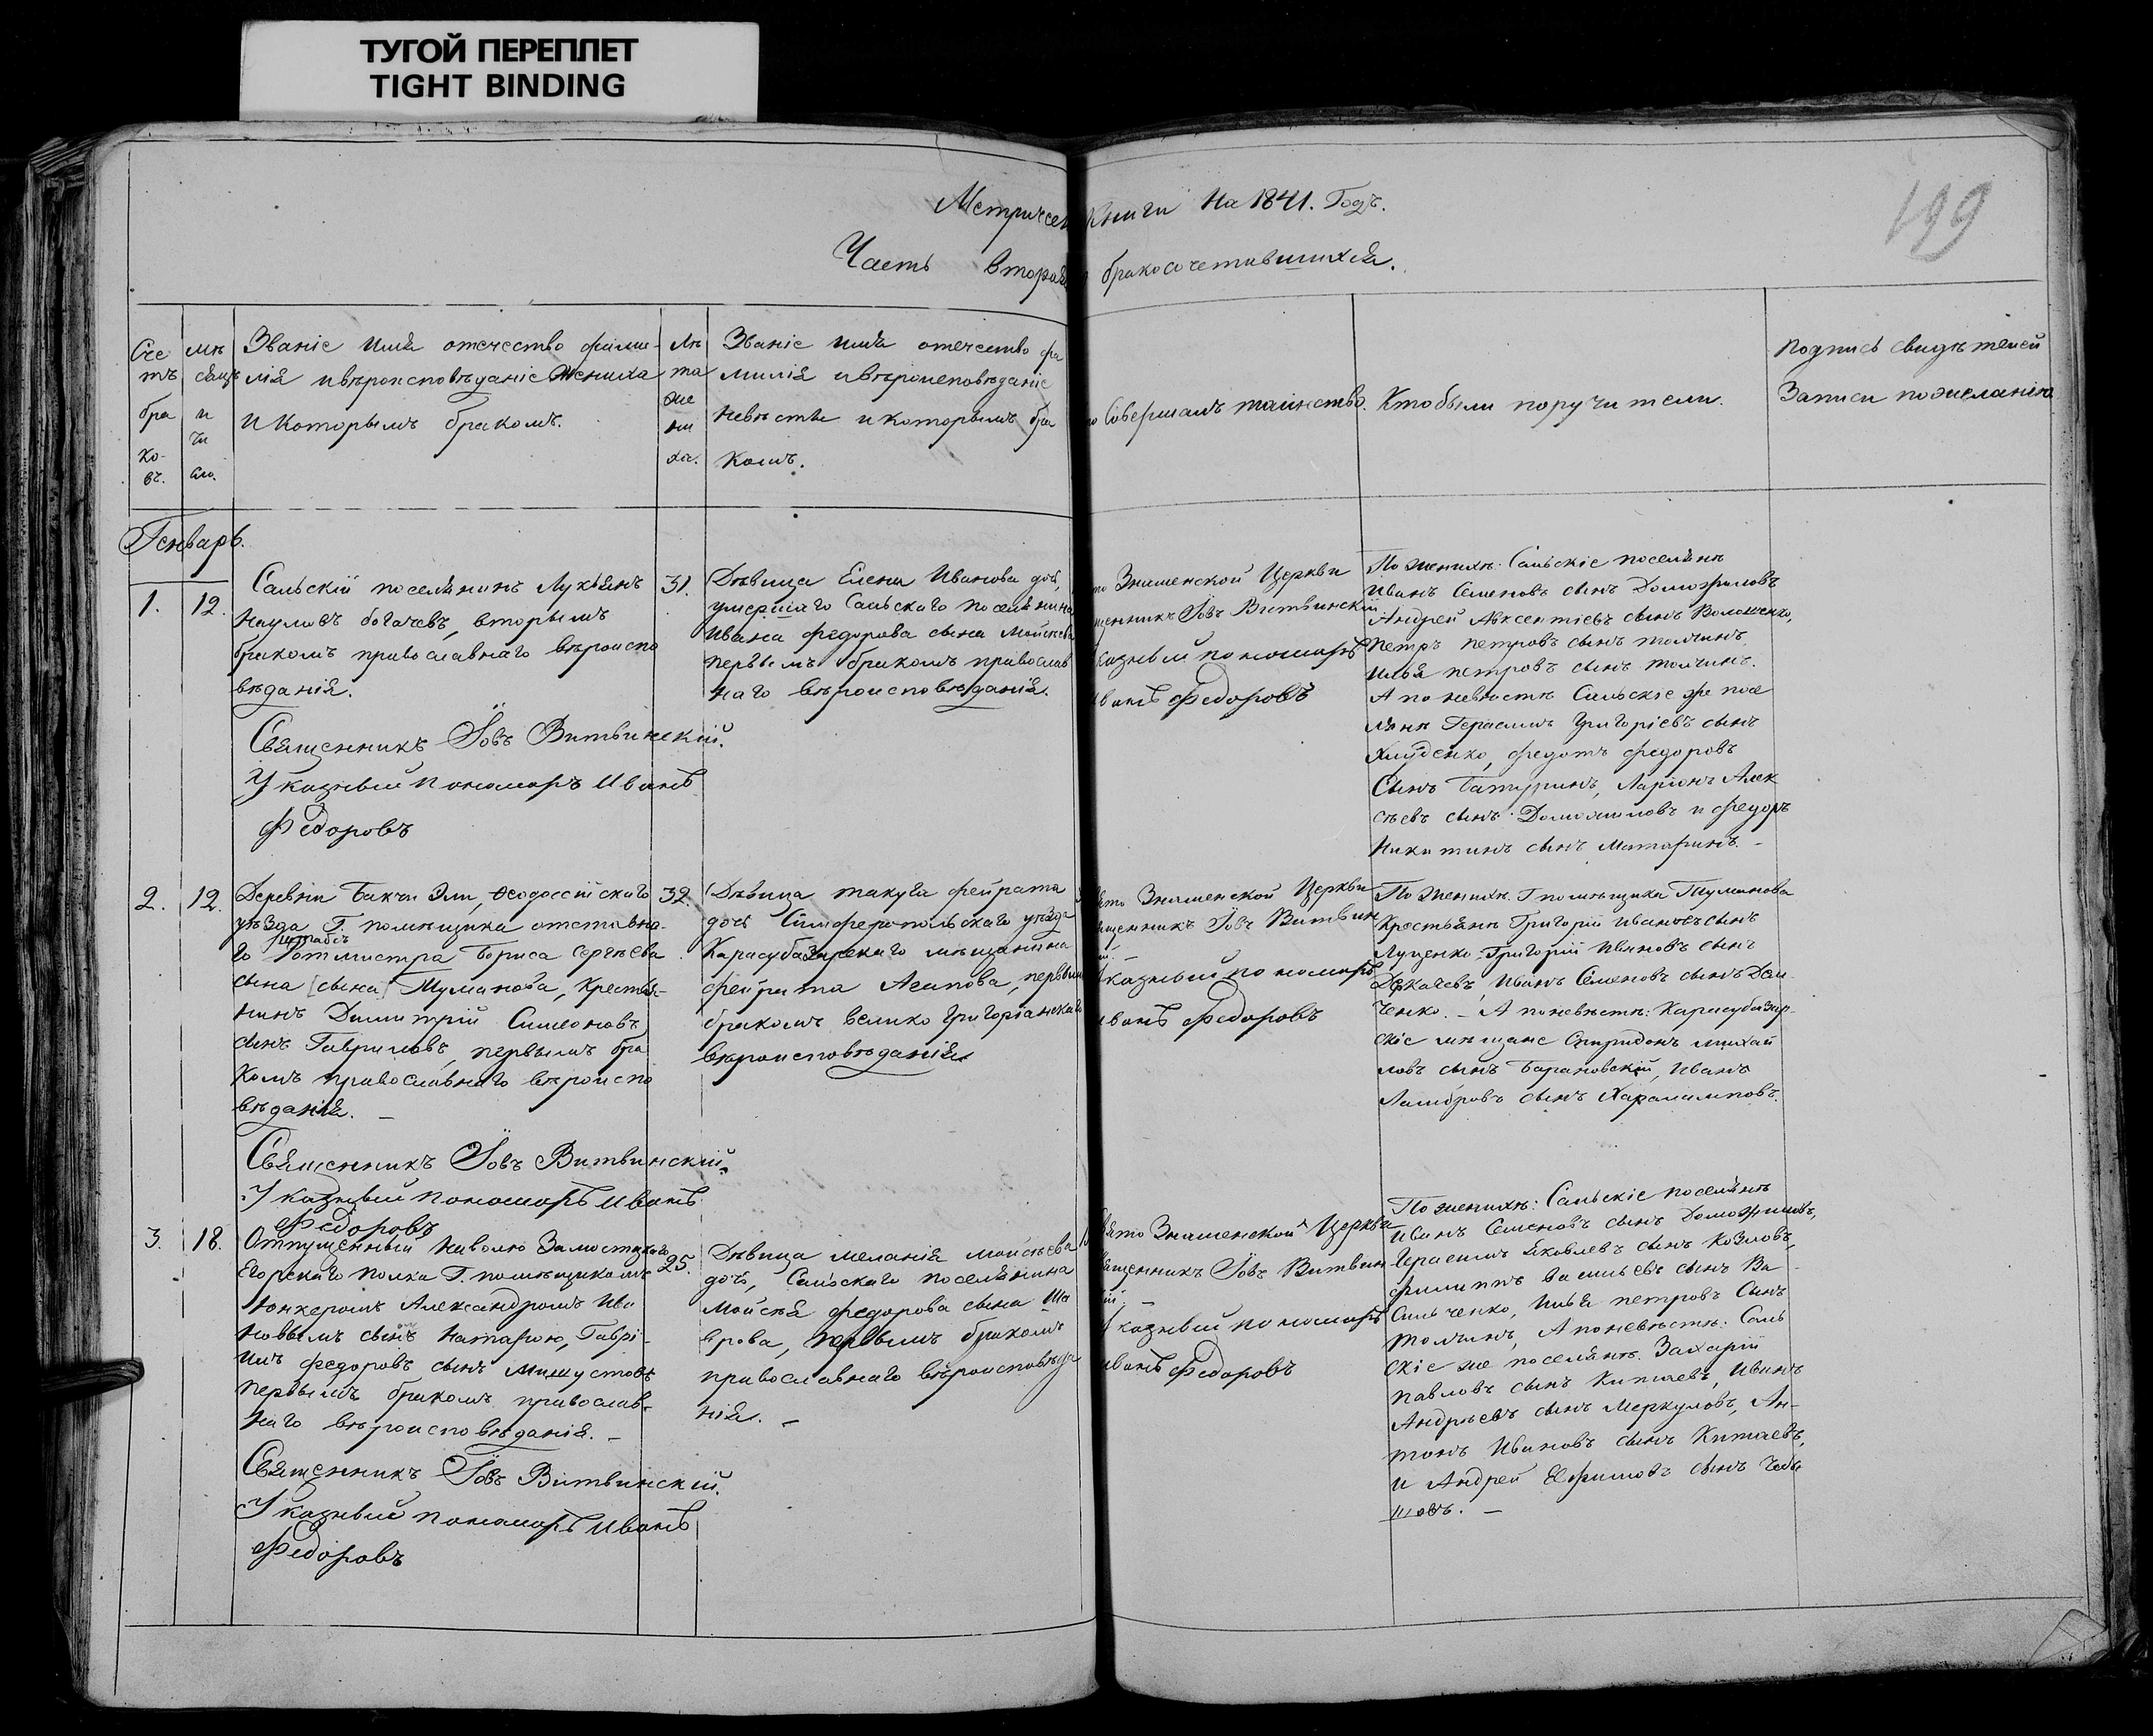 ТУГОЙ ПЕРЕПЛЕТ
TIGHT BINDING
199
Метрическ Книги на 1841. Годъ.
Часть вторая бракосочетавшихся.
Сче
тъ
бра
ко-
въ.
мѣ
сяцъ
и
чи
сло.
Званіе имя отечество фами-
лія и вѣроисповѣданіе жениха
и которымъ бракомъ.
Лѣ
та
же
ни
ха.
Званіе имя отечество фа
милія и вѣроисповѣданіе
невѣсты и которымъ бра
комъ.
то Совершалъ таинство.
Кто были поручители.
Подпись свидѣтелей
Записи по желанію
Генварь.
1.
12.
Сальскій поселянинъ Лукьянъ
Наумовъ богачевъ, вторымъ
бракомъ православнаго вѣроиспо
вѣданія.
Священникъ Іовъ Витвинскій.
Указный пономарь Иванъ
Федоровъ
31.
Дѣвица Елена Иванова дочь,
умершаго Сальскаго поселянина
Ивана федорова сына Мойсеева
первымъ бракомъ православ
наго вѣроисповѣданія.
то Знаменской Церкви
щенникъ Іовъ Витвинскій
казный пономарь
Иванъ Федоровъ
По женихѣ: Сальскіе поселянѣ
Иванъ Семеновъ сынъ Доможиловъ
Андрей Авксентіевъ сынъ Волошенко,
Петръ петровъ сынъ толчинъ,
Илья петровъ сынъ толчинъ.
А по невѣстѣ Сальскіе же посе
лянѣ Герасимъ Григоріевъ сынъ
федотъ федоровъ
Сынъ батуринъ, Ларіонъ Алек
сѣевъ сынъ Доможиловъ и федоръ
Никитинъ сынъ Матаринъ. -
2.
12.
Деревни Бакчи Эли, Ѳеодосійскаго
уѣзда Г. помѣщика отставна-
штабсъ
го Ротмистра Бориса Сергѣева
сына [сына] Туманова, крестья-
нинъ Димитрій Симеоновъ
сынъ Гавриловъ, первымъ бра
комъ православнаго вѣроиспо
вѣданія. -
Священникъ Іовъ Витвинскій.
Указный пономарь Иванъ
Федоровъ
32.
Дѣвица такуга фейрата
дочь Симферопольскаго уѣзда
Карасубазарскаго мѣщанина
фейрата Асипова, первым
бракомъ велико Григоріанскаго
вѣроисповѣданія
ято Знаменской Церкви
ященникъ Іовъ Витвин
казный пономарь
Иванъ Федоровъ
По женихѣ. Г помѣщика Туманова
Крестьянѣ Григорій ивановъ сынъ
Луценко, Григорій Ивановъ сынъ
Деркачевъ, Иванъ Семеновъ сынъ Дем-
ченко. - А по невѣстѣ: Карасубазар-
скіе мѣщане Спиридонъ михай
ловъ сынъ Барановскій, Иванъ
Ламбровъ сынъ Хараламповъ.
3.
18.
Отпущенный на волю Замостцкаго
Егорскаго полка Г. помѣщикомъ
Юнкеромъ Александромъ Ива
новымъ сыномъ Натарою, Гаврі-
илъ федоровъ сынъ Мишустовъ
первымъ бракомъ православ-
наго вѣроисповѣданія. -
Священникъ Іовъ Витвинскій.
Указный пономарь Иванъ
Федоровъ
25.
Дѣвица меланія мойсѣева
дочь, Сальскаго поселянина
Мойсѣя федорова сына Ша
врова, первымъ бракомъ
православнаго вѣроисповѣда
нія. -
вято Знаменской Церкви
ященникъ Іовъ Витвин
ій. -
казный пономарь
Иванъ Федоровъ
По женихѣ: Сальскіе поселянѣ
Иванъ Семеновъ сынъ Доможиловъ,
Герасимъ Яковлевъ сынъ Козловъ,
филиппъ васильевъ сынъ Ва
сильченко, Илья петровъ Сынъ
толчинъ, А по невѣстѣ: Саль
скіе же поселянѣ. Захарій
павловъ сынъ Китаевъ, Иванъ
Андрѣевъ сынъ Меркуловъ, Ан-
тонъ Ивановъ сынъ Китаевъ,
и Андрей Ефимовъ сынъ Чебы
шовъ. -